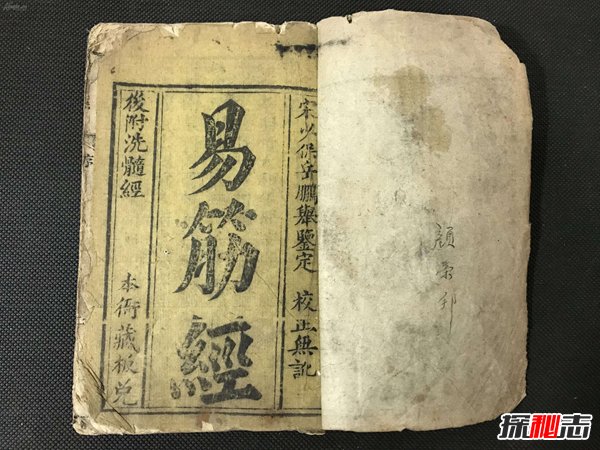 宋少保岳鵬舉鑒定 校正無訛
易筋經
後附洗髓經
本衙藏板兌
顧
探秘志